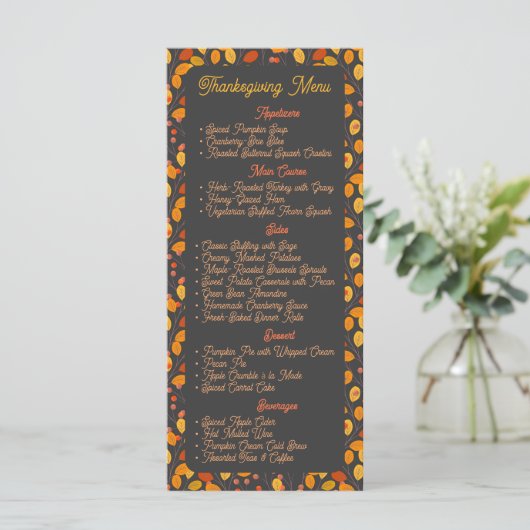 Thanksgiving Menu
Appetizers
• Spiced Pumpkin Soup
• Cranberry-Brie Bites
• Roasted Butternut Squash Crostini
Main Course
• Herb-Roasted Turkey with Gravy
• Honey-Glazed Ham
• Vegetarian Stuffed Acorn Squash
Sides
• Classic Stuffing with Sage
• Creamy Mashed Potatoes
• Maple-Roasted Brussels Sprouts
• Sweet Potato Casserole with Pecan
• Green Bean Almondine
• Homemade Cranberry Sauce
• Fresh-Baked Dinner Rolls
Dessert
• Pumpkin Pie with Whipped Cream
Pecan Pie
• Apple Crumble à la Mode
• Spiced Carrot Cake
Beverages
• Spiced Apple Cider
• Hot Mulled Wine
• Pumpkin Cream Cold Brew
• Assorted Teas & Coffee